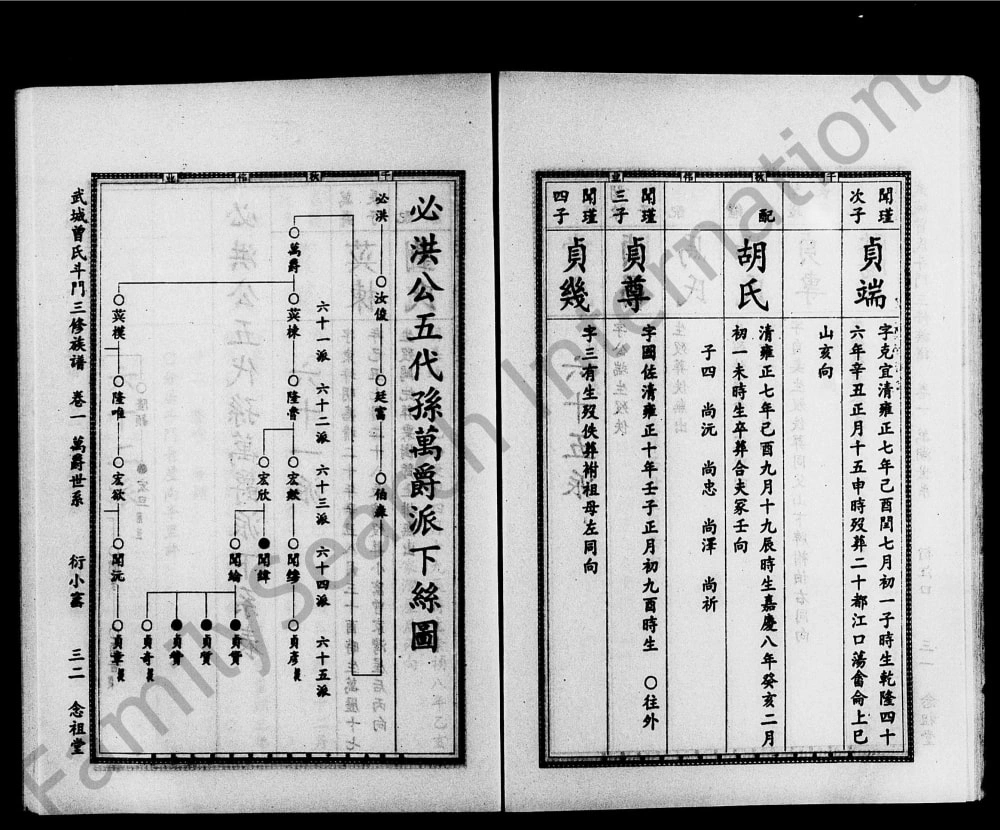 千秋偉業
聞瑾
次子
貞端
字克宜清雍正七年己酉閏七月初一子時生乾隆四十
六年辛丑正月十五申時歿葬二十都江口蕩畬侖上巳
山亥向
配
胡氏
清雍正七年己酉九月十九辰時生嘉慶八年癸亥二月
初一未時生卒葬合夫冢壬向
子四 尚沅 尚忠 尚澤 尚祈
聞瑾
三子
貞尊
字國佐清雍正十年壬子正月初九酉時生 ○往外
聞瑾
四子
貞幾
字三有生歿佚葬祔祖母左同向
千秋偉業
必洪公五代孫萬爵派下絲圖
必洪
○汝俊
○廷富
○伯
六十一派 六十二派 六十三派 六十四派 六十五派
○萬爵
○英棟
○隆
○宏
○聞
○貞彥
○宏欣
●聞
○聞
●貞
●貞
●貞
○貞奇
○英模
○隆唯
○宏欲
○聞沅
○貞
武城曾氏斗門三修族譜 卷一 萬爵世系 衍小富 三二 念祖堂
FamilySearch International